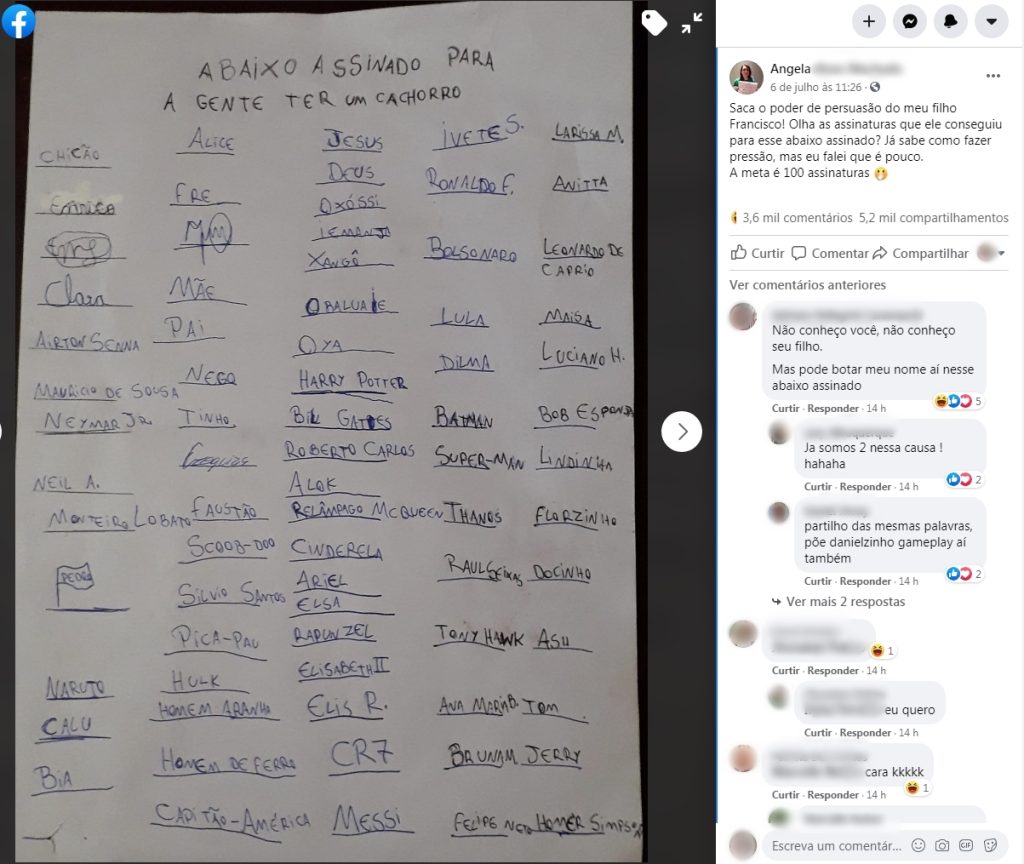 ABAIXO ASSINADO PARA
A GENTE TER UM CACHORRO
CHICÃO
Clara
AIRTON SENNA
MAURICIO DE SOUSA
NEYMAR JR
NEIL A.
MONTEIRO LOBATO
PEDRO
NARUTO
CALU
BIA
ALICE
FRE
MÃE
PAI
NEGO
TINHO
FAUSTÃO
SCOOB-DOO
SILVIO SANTOS
PICA-PAU
HULK
HOMEM ARANHA
HOMEM DE FERRO
CAPITÃO-AMÉRICA
JESUS
DEUS
OXÓSSI
IEMANJA
XANGÔ
OBALUAIE
OYA
HARRY POTTER
BIL GATES
ROBERTO CARLOS
ALOK
RELÂMPAGO MCQUEEN
CINDERELA
ARIEL
ELSA
RAPUNZEL
ELISABETH II
ELIS R.
CR7
MESSI
IVETE S.
RONALDO F.
BOLSONARO
LULA
DILMA
BATMAN
SUPER-MAN
THANOS
RAUL SEIXAS
TONY HAWK
ANA MARIA B.
BRUNAM
FELIPE NETO
LARISSA M.
ANITTA
LEONARDO DE
CAPRIO
MAISA
LUCIANO H.
BOB ESPONJA
LINDINHA
FLORZINHA
DOCINHO
ASH
TOM
JERRY
HOMER SIMPSON
Angela
6 de julho às 11:26 ·
Saca o poder de persuasão do meu filho
Francisco! Olha as assinaturas que ele conseguiu
para esse abaixo assinado? Já sabe como fazer
pressão, mas eu falei que é pouco.
A meta é 100 assinaturas
3,6 mil comentários 5,2 mil compartilhamentos
Curtir Comentar Compartilhar
Ver comentários anteriores
Não conheço você, não conheço
seu filho.
Mas pode botar meu nome aí nesse
abaixo assinado
5
Curtir · Responder · 14 h
Ja somos 2 nessa causa !
hahaha
2
Curtir · Responder · 14 h
partilho das mesmas palavras,
põe danielzinho gameplay aí
também
2
Curtir · Responder · 14 h
Ver mais 2 respostas
1
Curtir · Responder · 14 h
eu quero
Curtir · Responder · 14 h
cara kkkkk
1
Curtir · Responder · 14 h
Escreva um comentár...
GIF